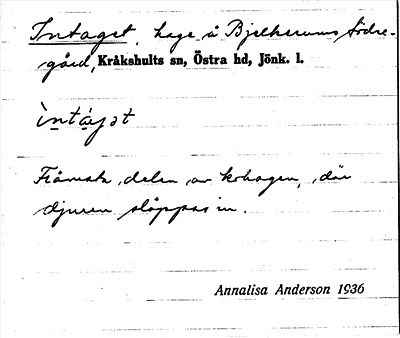 Intaget, hage å Bjelkerums Södre-
gård, Kråkshults sn, Östra hd, Jönk. l.
ìntáɡət
Främsta delen av kohagen, där
djuren släppas in.
Annalisa Anderson 1936